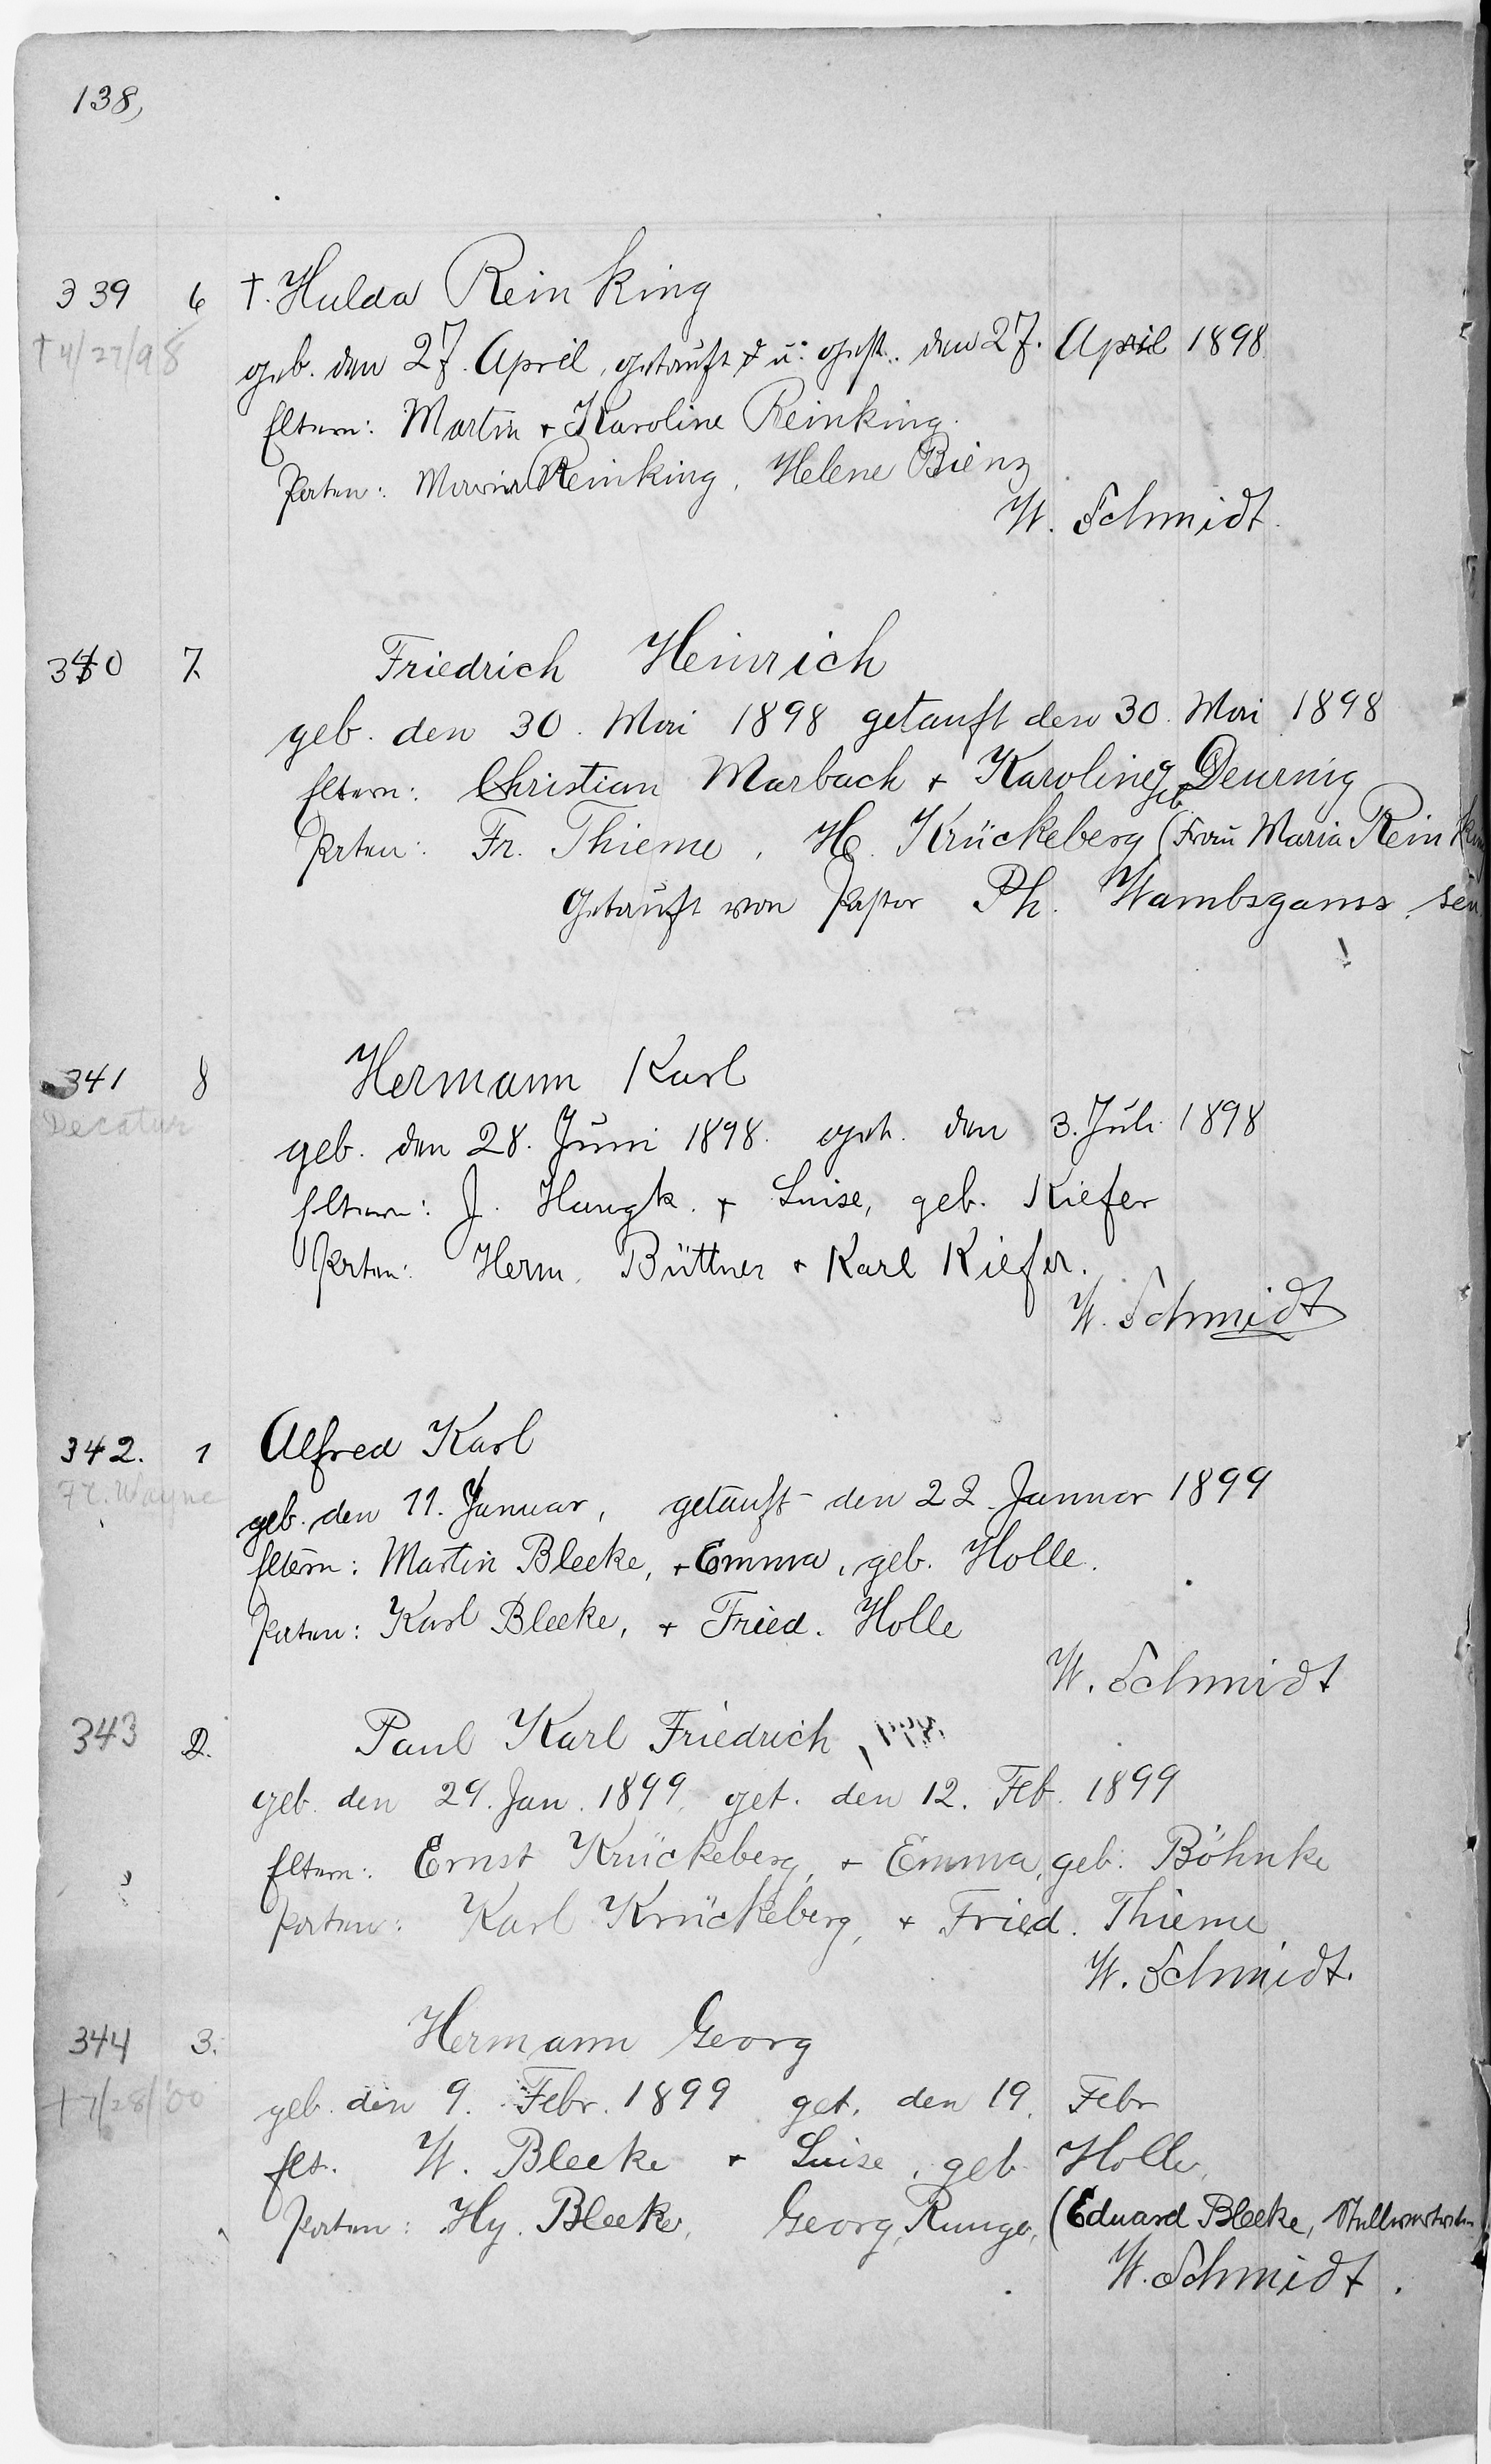 138,
339 6 †. Hulda Reinking
† 4/27/98
geb. den 27. April, getauft u. gest. den 27. April 1898
Eltern: Martin + Karoline Reinking.
Paten: Maria Reinking, Helene Bienz
W. Schmidt.
340 7. Friedrich Heinrich
geb. den 30. Mai 1898 getauft den 30. Mai 1898
Eltern: Christian Marbach + Karoline geb.
Paten: Fr. Thieme, H. Krückeberg (Frau Maria Reinking
Getauft von Pastor Ph. Wambsganss, sen
341 8 Hermann Karl
Decatur
geb. den 28. Juni 1898. get. den 3. Juli 1898
Eltern: J. + Luise, geb. Kiefer
Paten: Herm. Büttner + Karl Kiefer.
W. Schmidt
342. 1 Alfred Karl
Ft. Wayne
geb. den 11. Januar, getauft den 22. Januar 1899
Eltern: Martin Bleeke, + Emma, geb. Holle.
Paten: Karl Bleeke, + Fried. Holle
W. Schmidt
343 2. Paul Karl Friedrich,
geb. den 29. Jan. 1899, get. den 12. Feb. 1899
Eltern: Ernst Krückeberg, + Emma, geb. Böhnke
Paten: Karl Krückeberg, + Fried. Thieme
W. Schmidt.
344 3. Hermann Georg
† 7/28/'00
geb. den 9. Febr. 1899 get. den 19. Febr
Elt. W. Bleeke + Luise, geb. Holle,
Paten: Hy. Bleeke, Georg Runge, (Eduard Bleeke,
W. Schmidt.